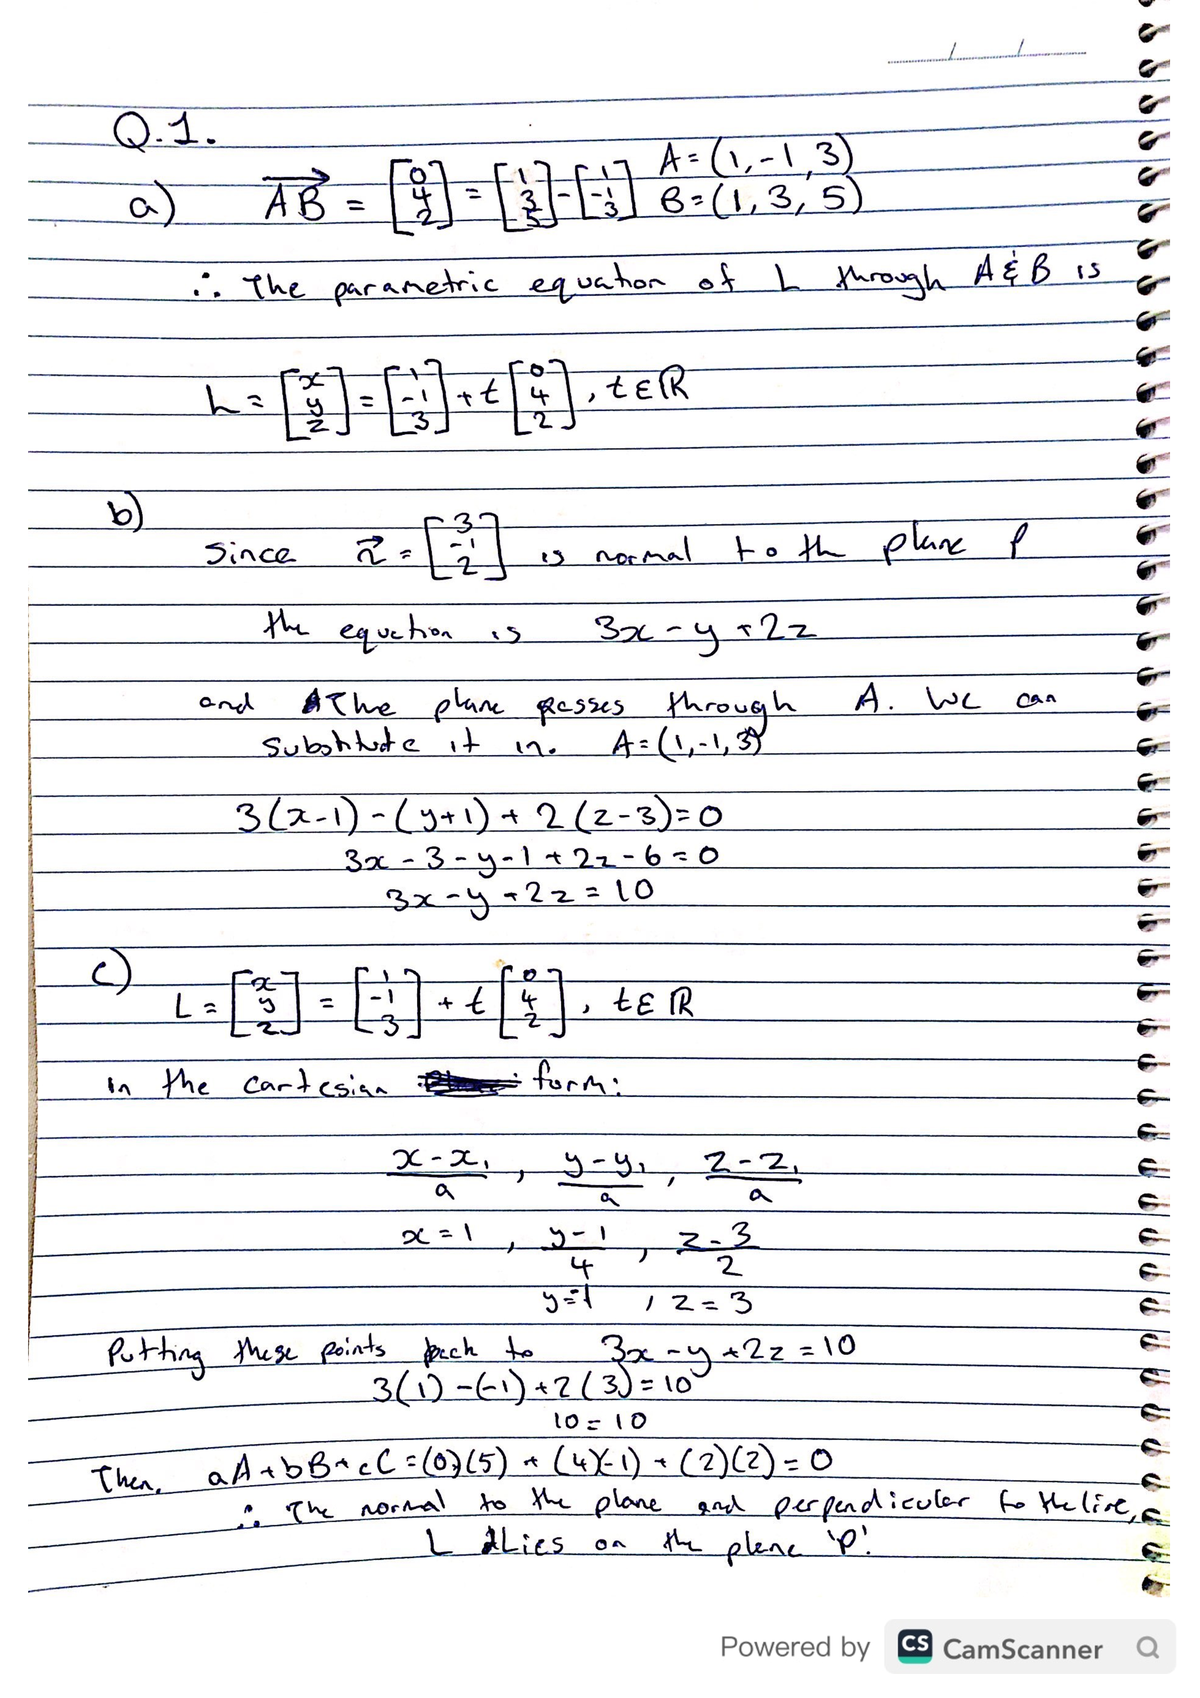 Q.1.
a) AB = [0 4 2] = [1 3 5] - [1 -1 3] A = (1, -1, 3)
B = (1, 3, 5)
∴ The parametric equation of L through A & B is
L = [x y z] = [1 -1 3] + t [0 4 2], t ∈ ℝ
b)
Since n = [3 -1 2] is normal to th plane P
the equation is 3x - y + 2z
and The plane passes through A. We can
Substitute it in. A = (1, -1, 3)
3(x-1) - (y+1) + 2(z-3) = 0
3x - 3 - y - 1 + 2z - 6 = 0
3x - y + 2z = 10
c)
L = [x y z] = [1 -1 3] + t [0 4 2], t ∈ ℝ
in the cartesian form:
x - x₁ / a , y - y₁ / a , z - z₁ / a
x = 1 , y - 1 / 4 , z - 3 / 2
y = 1 , z = 3
Putting these points back to 3x - y + 2z = 10
3(1) - (-1) + 2(3) = 10
10 = 10
Then, aA + bB + cC = (0)(5) + (4)(-1) + (2)(2) = 0
∴ The normal to the plane and perpendicular to the line,
L Lies on the plane 'P'.
Powered by CS CamScanner